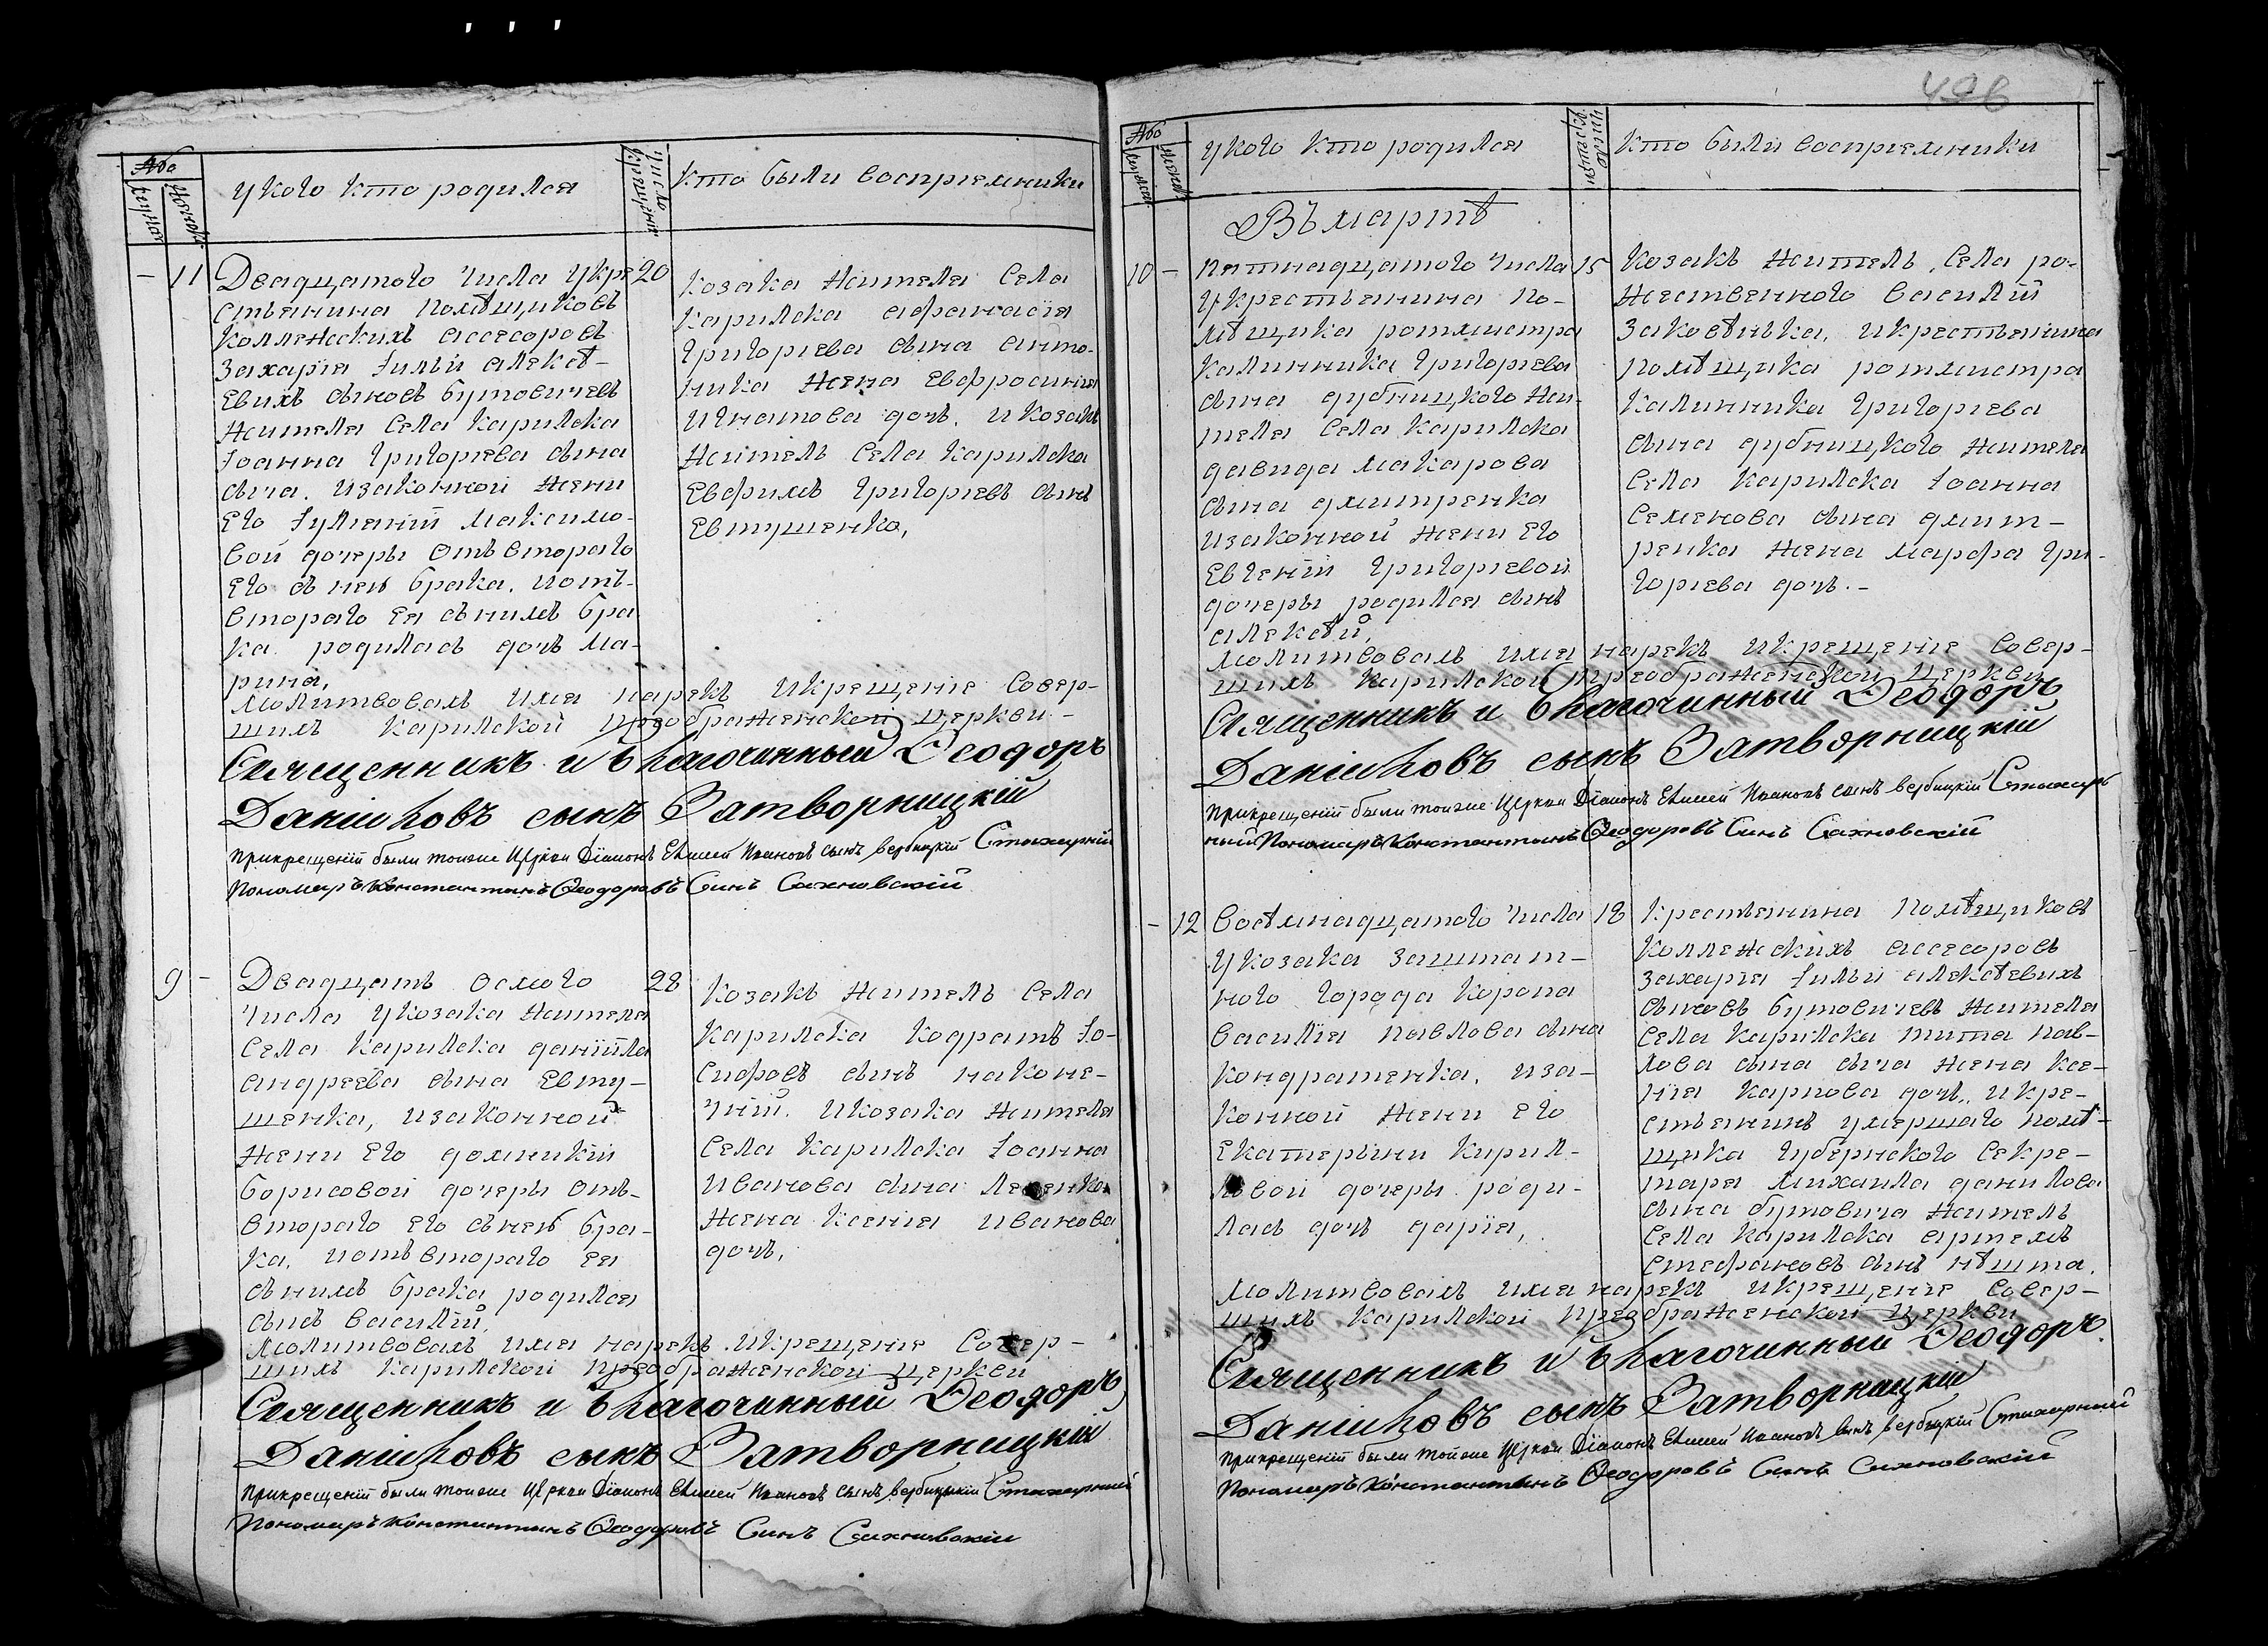 496
Або
мужеска
женска
У кого кто родился
число крещения
Кто были восприемники
11
20
Двадцатого числа у кре
стьянина помѣщиковъ
коллежскихъ асесоровъ
Захарїя Іилїи алексѣ-
евихъ синовъ бутовичевъ
жителя села карилска
Іоанна григорїева сина
сича. изаконной жени
его Іулїаній максимо-
вой дочеры отъ второго
его съ нею брака. иотъ-
второго ея снимъ бра
ка. родиласъ дочъ ма-
рина,
козака жителя села
карилска афанасїя
григорїева сина анто-
ника жена евфросинїя
игнатова дочъ. икозакъ
житель села карилска
евфимъ григорїевъ синъ
евтушенко,
молитвовалъ имя нарекъ икрещение совер-
шилъ карилской преображенской церкви -
Священникъ и благочинный Ѳеодоръ
Данииловъ сынъ Затворницкій
прикрещеній были тоиже Церкви Діаконъ Евсей Ивановъ сынъ вербицкій Стихарный
Пономаръ Константинъ Ѳеодоровъ Синъ Сахновский
9
28
Двадцатъ осмого
числа укозака жителя
села карилска данїйла
андреева сина евту-
шенка, изаконной
жени его домникїй
борисовой дочеры отъ-
второго его снею бра-
ка, иотъ второго ея
снимъ брака родился
синъ василїй,
козакъ житель села
карилска кодратъ Іо-
сифовъ синъ наконе-
чній. икозака жителя
села карилска Іоанна
иванова сина
жена ксенїя иванова
дочъ,
молитвовалъ имя нарекъ икрещение совер-
шилъ карилской преображенской церкви
Священникъ и благочинный Ѳеодоръ
Данииловъ сынъ Затворницкій
прикрещеній были тоиже Церкви Діаконъ Евсей Ивановъ сынъ вербицкій Стихарный
Пономаръ Константинъ Ѳеодоровъ Синъ Сахновский
Або
У кого кто родился
число крещения
Кто были восприемники
Въ мартѣ
10
15
пятнадцатого числа
укрестьянина по-
мѣщика ротмистра
калинника григорїева
сина дубницкого жи-
теля села карилска
давида макарова
сина дмитренка
изаконной жени его
евгенїй григорїевой
дочеры родился синъ
алексѣй,
козакъ житель, села ро-
жественного василїй
закосѣнька, икрестьянина
помѣщика ротмистра
калинника григорїева
сина дубницкого жителя
села карилска Іоанна
семенова сина дмит-
ренка жена марфа гри-
горїева дочъ.-
молитвовалъ имя нарекъ икрещение совер-
шилъ карилской преображенской церкви
Священникъ и благочинный Ѳеодоръ
Данииловъ сынъ Затворницкій
прикрещеній были тоиже Церкви Діаконъ Евсей Ивановъ сынъ вербицкій Стихар
ный Пономаръ Константинъ Ѳеодоровъ Синъ Сахновский
12
18
восѣмнадцатого числа
укозака заштат-
ного города коропа
василїя павлова сина
кондратенка, иза-
конной жени его
екатерыни кирил-
ловой дочеры роди-
ласъ дочъ дарїя,
крестьянина помѣщиковъ
коллежскихъ асесоровъ
захарїя Іилїи алексѣевихъ
синовъ бутовичевъ жителя
села карилски тита пав-
лова сина сича жена ксе-
нїя карпова дочъ, икре-
стьянинъ умершаго помѣ-
щика губернского секре-
тара михаила данилова
сина бутовича житель
села карилска артемъ
стефановъ синъ нѣшта,
молитвовалъ имя нарекъ икрещение совер-
шилъ карилской преображенской церкви
Священникъ и благочинный Ѳеодоръ
Данииловъ сынъ Затворницкій
прикрещеній были тоиже Церкви Діаконъ Евсей Ивановъ синъ вербицкій Стихарный
Пономаръ Константинъ Ѳеодоровъ Синъ Сахновский